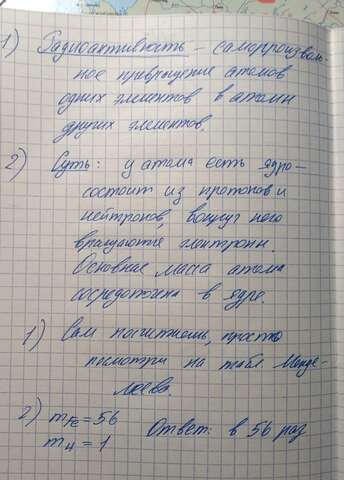 1) Радиоактивность – самопроизволь-
ное превращение атомов
одних элементов в атомы
других элементов.
2) Суть: у атома есть ядро –
состоит из протонов и
нейтронов, вокруг него
вращаются электроны.
Основная масса атома
сосредоточена в ядре.
1) Сам посчитаешь, просто
посмотри на табл Менде-
леева.
2) mFe = 56
mH = 1 Ответ: в 56 раз